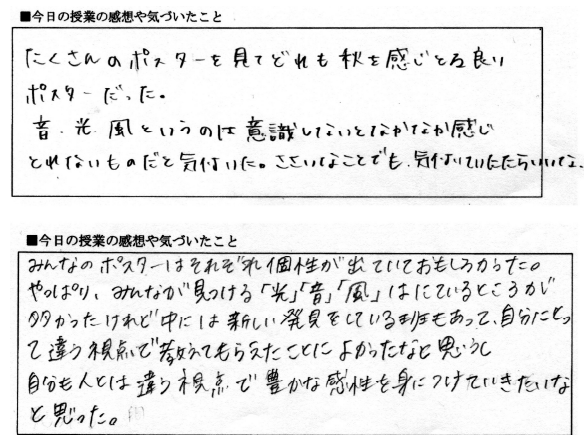 ■今日の授業の感想や気づいたこと
たくさんのポスターを見てどれも秋を感じとる良い
ポスターだった。
音・光・風というのは意識しないとなかなか感じ
とれないものだと気付いた。ささいなことでも、気付いていけたらいいな。
■今日の授業の感想や気づいたこと
みんなのポスターはそれぞれ個性が出ていておもしろかった。
やっぱり、みんなが見つける「光」「音」「風」はにているところが
多かったけれど中には新しい発見をしている班もあって、自分にとっ
て違う視点で教えてもらえたことによかったなと思うし
自分も人とは違う視点で豊かな感性を身につけていきたいな
と思った。